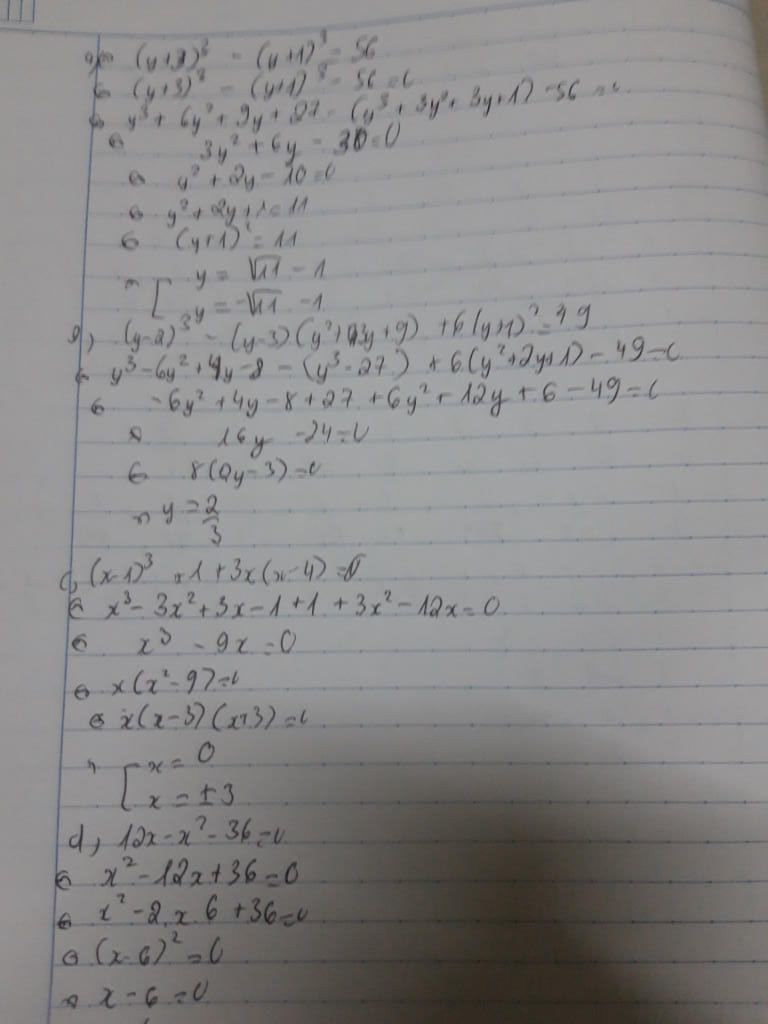 a) ⇔ (y+3)³ - (y+1)³ = 56
⇔ (y+3)³ - (y+1)³ - 56 = 0
⇔ y³ + 6y² + 9y + 27 - (y³ + 3y² + 3y + 1) - 56 = 0
⇔ 3y² + 6y - 30 = 0
⇔ y² + 2y - 10 = 0
⇔ y² + 2y + 1 = 11
⇔ (y+1)² = 11
⇒ [ y = √11 - 1
y = -√11 - 1
b) (y-2)³ - (y-3)(y² + 3y + 9) + 6(y+1)² = 49
⇔ y³ - 6y² + 4y - 8 - (y³ - 27) + 6(y² + 2y + 1) - 49 = 0
⇔ -6y² + 4y - 8 + 27 + 6y² + 12y + 6 - 49 = 0
⇔ 16y - 24 = 0
⇔ 8(2y - 3) = 0
⇒ y = 2/3
c, (x-1)³ + 1 + 3x(x-4) = 0
⇔ x³ - 3x² + 3x - 1 + 1 + 3x² - 12x = 0
⇔ x³ - 9x = 0
⇔ x(x² - 9) = 0
⇔ x(x-3)(x+3) = 0
⇒ [ x = 0
x = ±3
d, 12x - x² - 36 = 0
⇔ x² - 12x + 36 = 0
⇔ x² - 2.x.6 + 36 = 0
⇔ (x-6)² = 0
⇒ x - 6 = 0